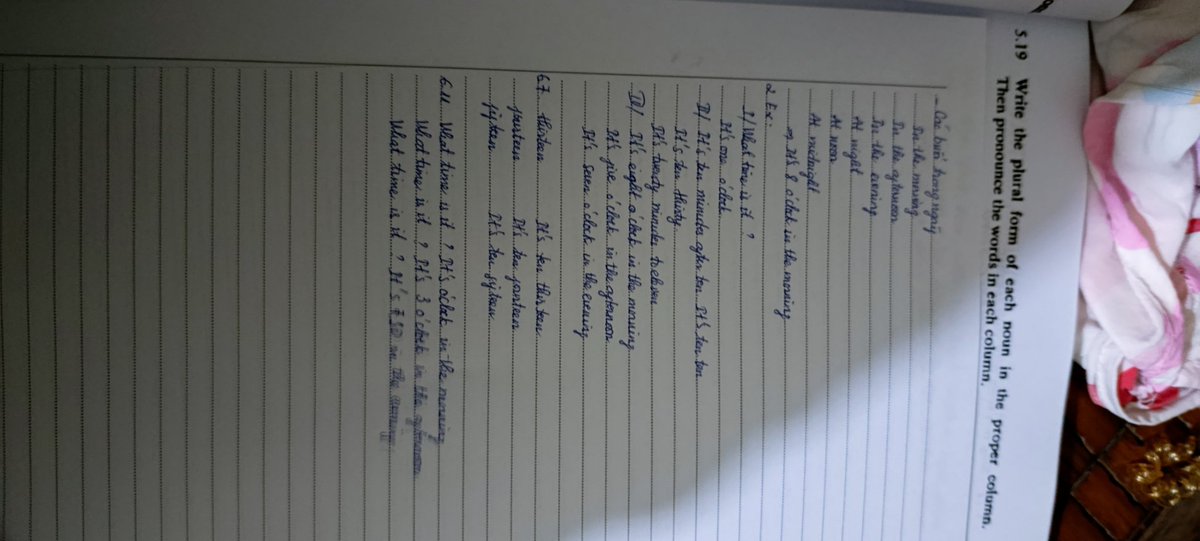 5.19 Write the plural form of each noun in the proper column.
Then pronounce the words in each column.
- Các buổi trong ngày
In the morning
In the afternoon
In the evening
At night
At noon
At midnight
=> It's 8 o'clock in the morning
2. Ex:
I/ What time is it ?
It's one o'clock
II/ It's ten minutes after ten. It's ten ten
It's ten thirty
It's twenty minutes to eleven
III/ It's eight o'clock in the morning
It's five o'clock in the afternoon
It's seven o'clock in the evening
6.7. thirteen It's ten thirteen
fourteen It's ten fourteen
fifteen It's ten fifteen
6.11 What time is it ? It's o'clock in the morning
What time is it ? It's 3 o'clock in the afternoon
What time is it ? It's 7:50 in the evening